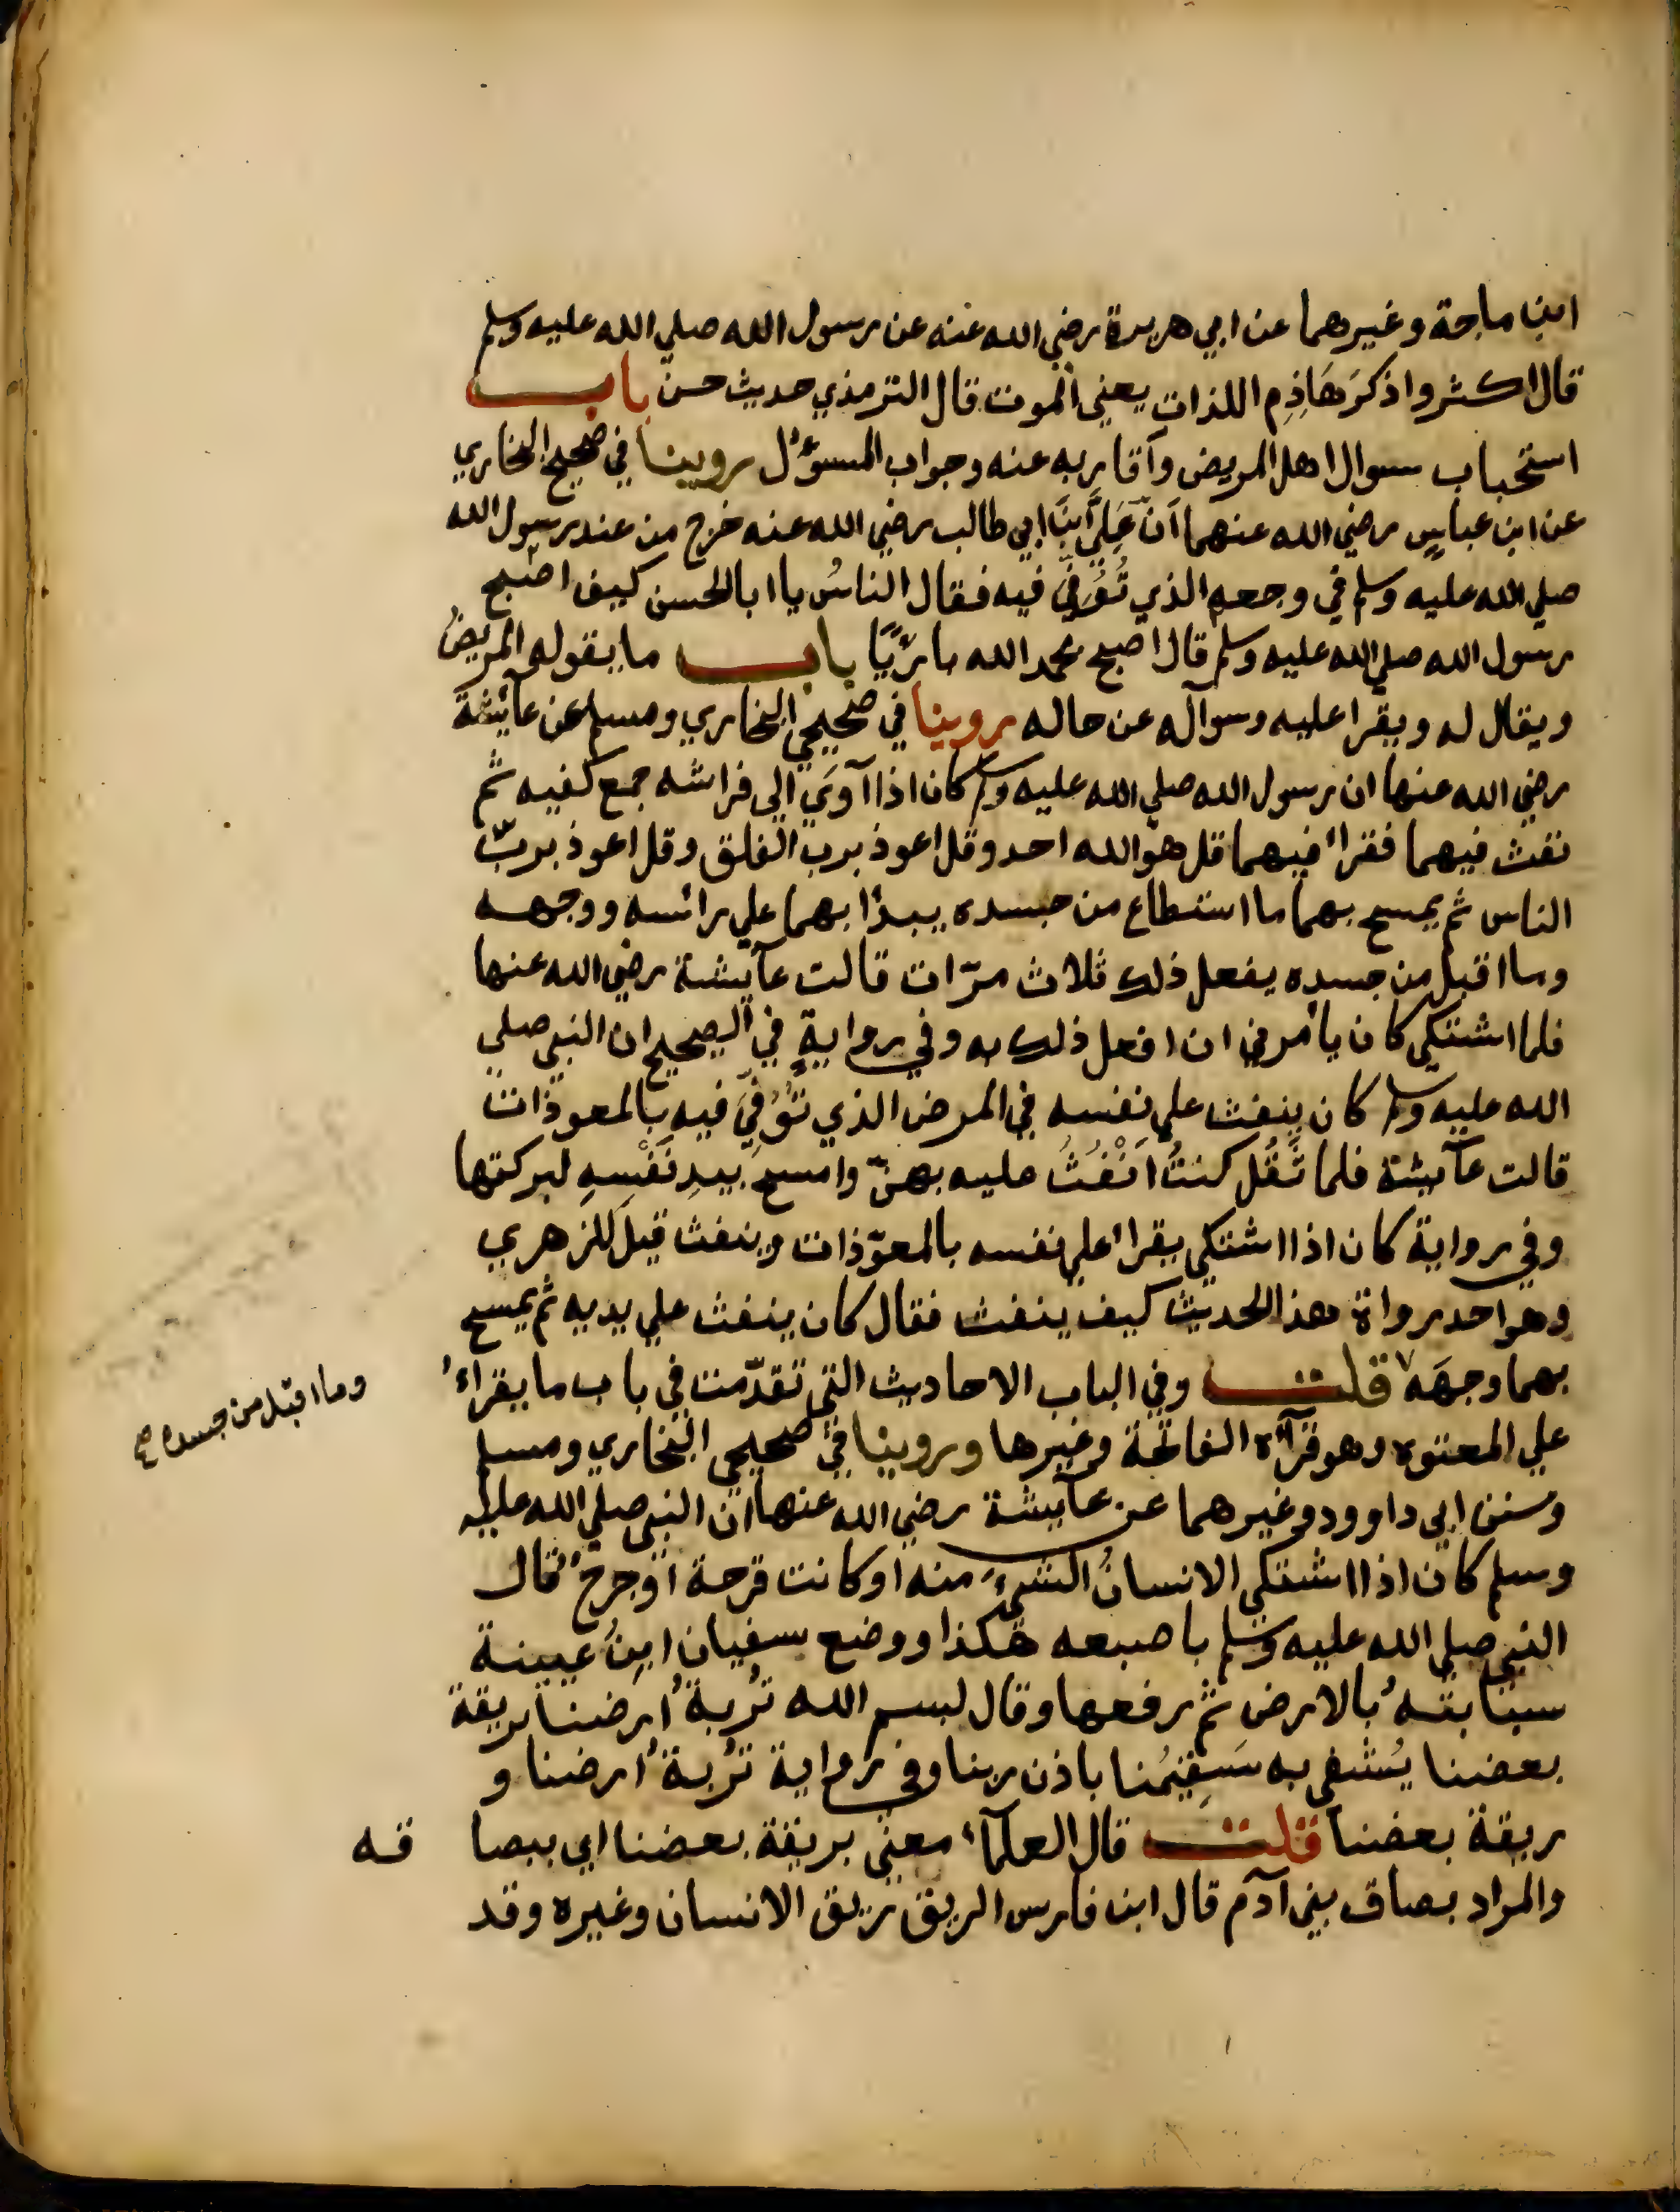 ابن ماجة وغيرهما عن ابي هريرة رضي الله عنه عن رسول الله صلي الله عليه وسلم
قال اكثروا ذكرَ هَاذِمِ اللذات يعني الموت قال الترمذي حديث حسن باب
استحباب سوال اهل المريض وأقاربه عنه وجواب المسؤل روينا في صحيح البخاري
عن ابن عباسٍ رضي الله عنهما اَنّ عَلِيَّ ابنَ ابي طالب رضي الله عنه خرج من عند رسول الله
صلي الله عليه وسلم في وجعهِ الذي تُوُفِّيَ فيه فقال الناسُ يا ابا الحسن كيف اصْبح
رسول الله صلي الله عليه وسلم قال اصبح بحمد الله بارئًا باب ما يقوله المريضُ
ويقال له ويقرا عليه وسوآله عن حاله روينا في صحيحي البخاري ومسلم عن عآئشة
رضي الله عنها ان رسول الله صلي الله عليه وسلم كان اذا آوَي الي فراشه جمع كفيه ثم
نفث فيهما فقرأ فيهما قل هو الله احد وقل اعوذ برب الفلق وقل اعوذ بربّ
الناس ثم يمسح بهما ما استطاع من جسده يبدؤا بهما علي رائسه ووجهه
وما اقبل من جسده يفعل ذلك ثلاث مرّات قالت عآيشة رضي الله عنها
فلما اشتكي كان يأمرني ان افعل ذلك به وفي روايةٍ في الصحيح ان النبي صلي
الله عليه وسلم كان ينفث علي نفسه في المرض الذي تُوُفِّيَ فيه بالمعوذات
قالت عآيشة فلما ثَقُل كنتُ اَنْفُثُ عليه بهنّ وامسح بيدِ نَفْسِهِ لبركتها
وفي رواية كان اذا اشتكي يقرأ علي نفسه بالمعوّذات وينفث قيلَ للزهري
وهو احد رواة هذا الحديث كيف ينفث فقال كان ينفث علي يديه ثم يمسح
بهما وجهَه قلت وفي الباب الاحاديث التي تقدّمت في باب ما يقراءُ
وما اقبل من جسده صح
علي المعتوه وهو قرآءة الفاتحة وغيرها وروينا في صحيحي البخاري ومسلم
وسنن ابي داوود وغيرهما عن عآيشة رضي الله عنها ان النبي صلي الله عليه
وسلم كان اذا اشتكي الانسانُ الشيءَ منه او كانت قرحة اَوْ جرحٌ قال
النبي صلي الله عليه وسلم باصبعه هكذا ووضع سفيان ابنُ عيينة
سبّابتهُ بالارض ثم رفعها وقال بسم الله تُربةُ ارضنا بريقة
بعضنا يُشفي به سَقِيْمُنا باذن ربنا وفي رواية تُربةُ ارضنا و
ريقة بعضنا قلت قال العلمآءُ معني بريقة بعضنا اي ببصا قه
والمراد بصاق بني آدم قال ابن فارس الريق ريق الانسان وغيره وقد